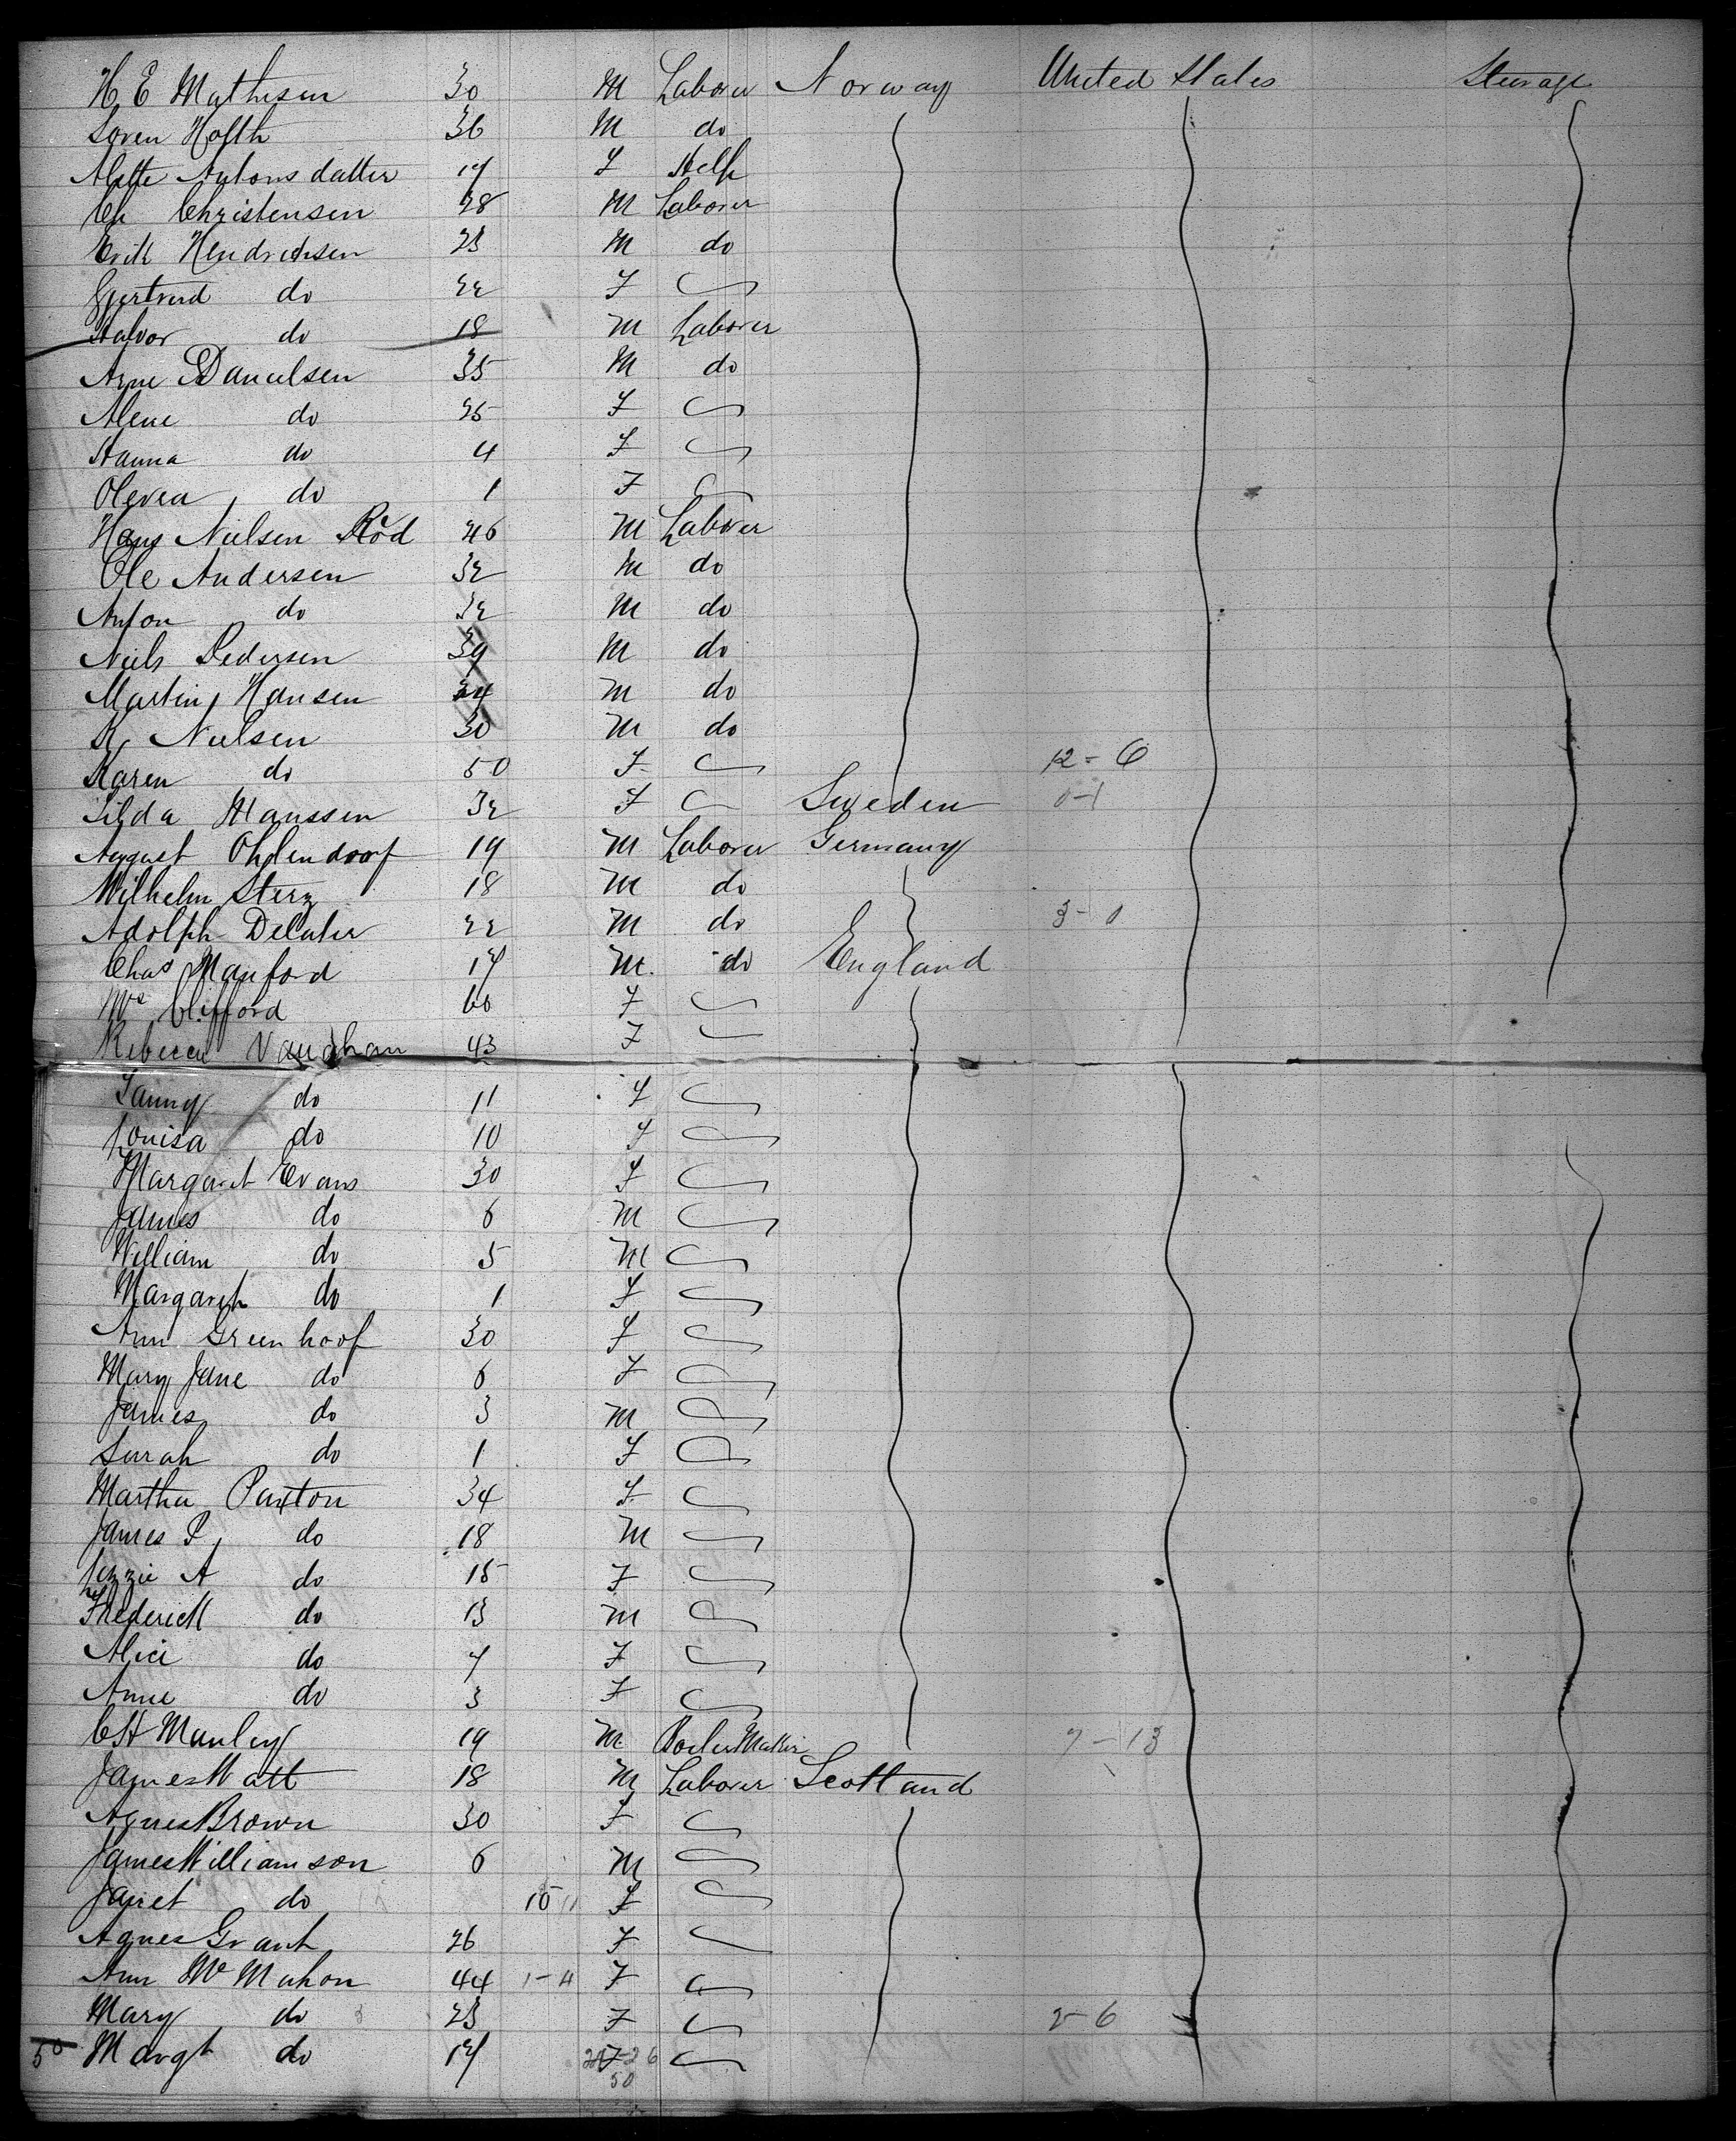 H E Mathisen 30 M Laborer Norway United States Steerage
Soren Holth 36 M do
Alette Antonsdatter 17 F Help
Ch Christensen 28 M Laborer
Erik Hendriksen 23 M do
Gjertrud do 22 F
Halvor do 18 M Laborer
Arne Danielsen 35 M do
Alene do 25 F
Hanna do 4 F
Olevea do 1 F
Hans Nielsen Rod 46 M Laborer
Ole Andersen 32 M do
Anton do 32 M do
Niels Pedersen 39 M do
Martin Hansen 24 M do
K Nielsen 30 M do
Karen do 50 F 12-6
Silda Hanssen 32 F Sweden 0-1
August Ohlendorf 19 M Laborer Germany
Wilhelm Sterz 18 M do
Adolph 22 M do 3-0
Chas Manford 17 M do England
Mrs Clifford 60 F
Rebecca Vaughan 43 F
Fanny do 11 F
Louisa do 10 F
Margaret Evans 30 F
James do 6 M
William do 5 M
Margaret do 1 F
Ann Greenhoof 30 F
Mary Jane do 6 F
James do 3 M
Sarah do 1 F
Martha Paxton 34 F
James P do 18 M
Lizzie A do 15 F
Frederick do 13 M
Alice do 7 F
Anne do 3 F
C H Manley 19 M Boiler Maker 7-13
James Watt 18 M Laborer Scotland
Agnes Brown 30 F
James Williamson 6 M
Janet do 10 F
Agnes Grant 26 F
Ann McMahon 44 1-4 F
Mary do 23 F 2-6
50 Margt do 17 F
50